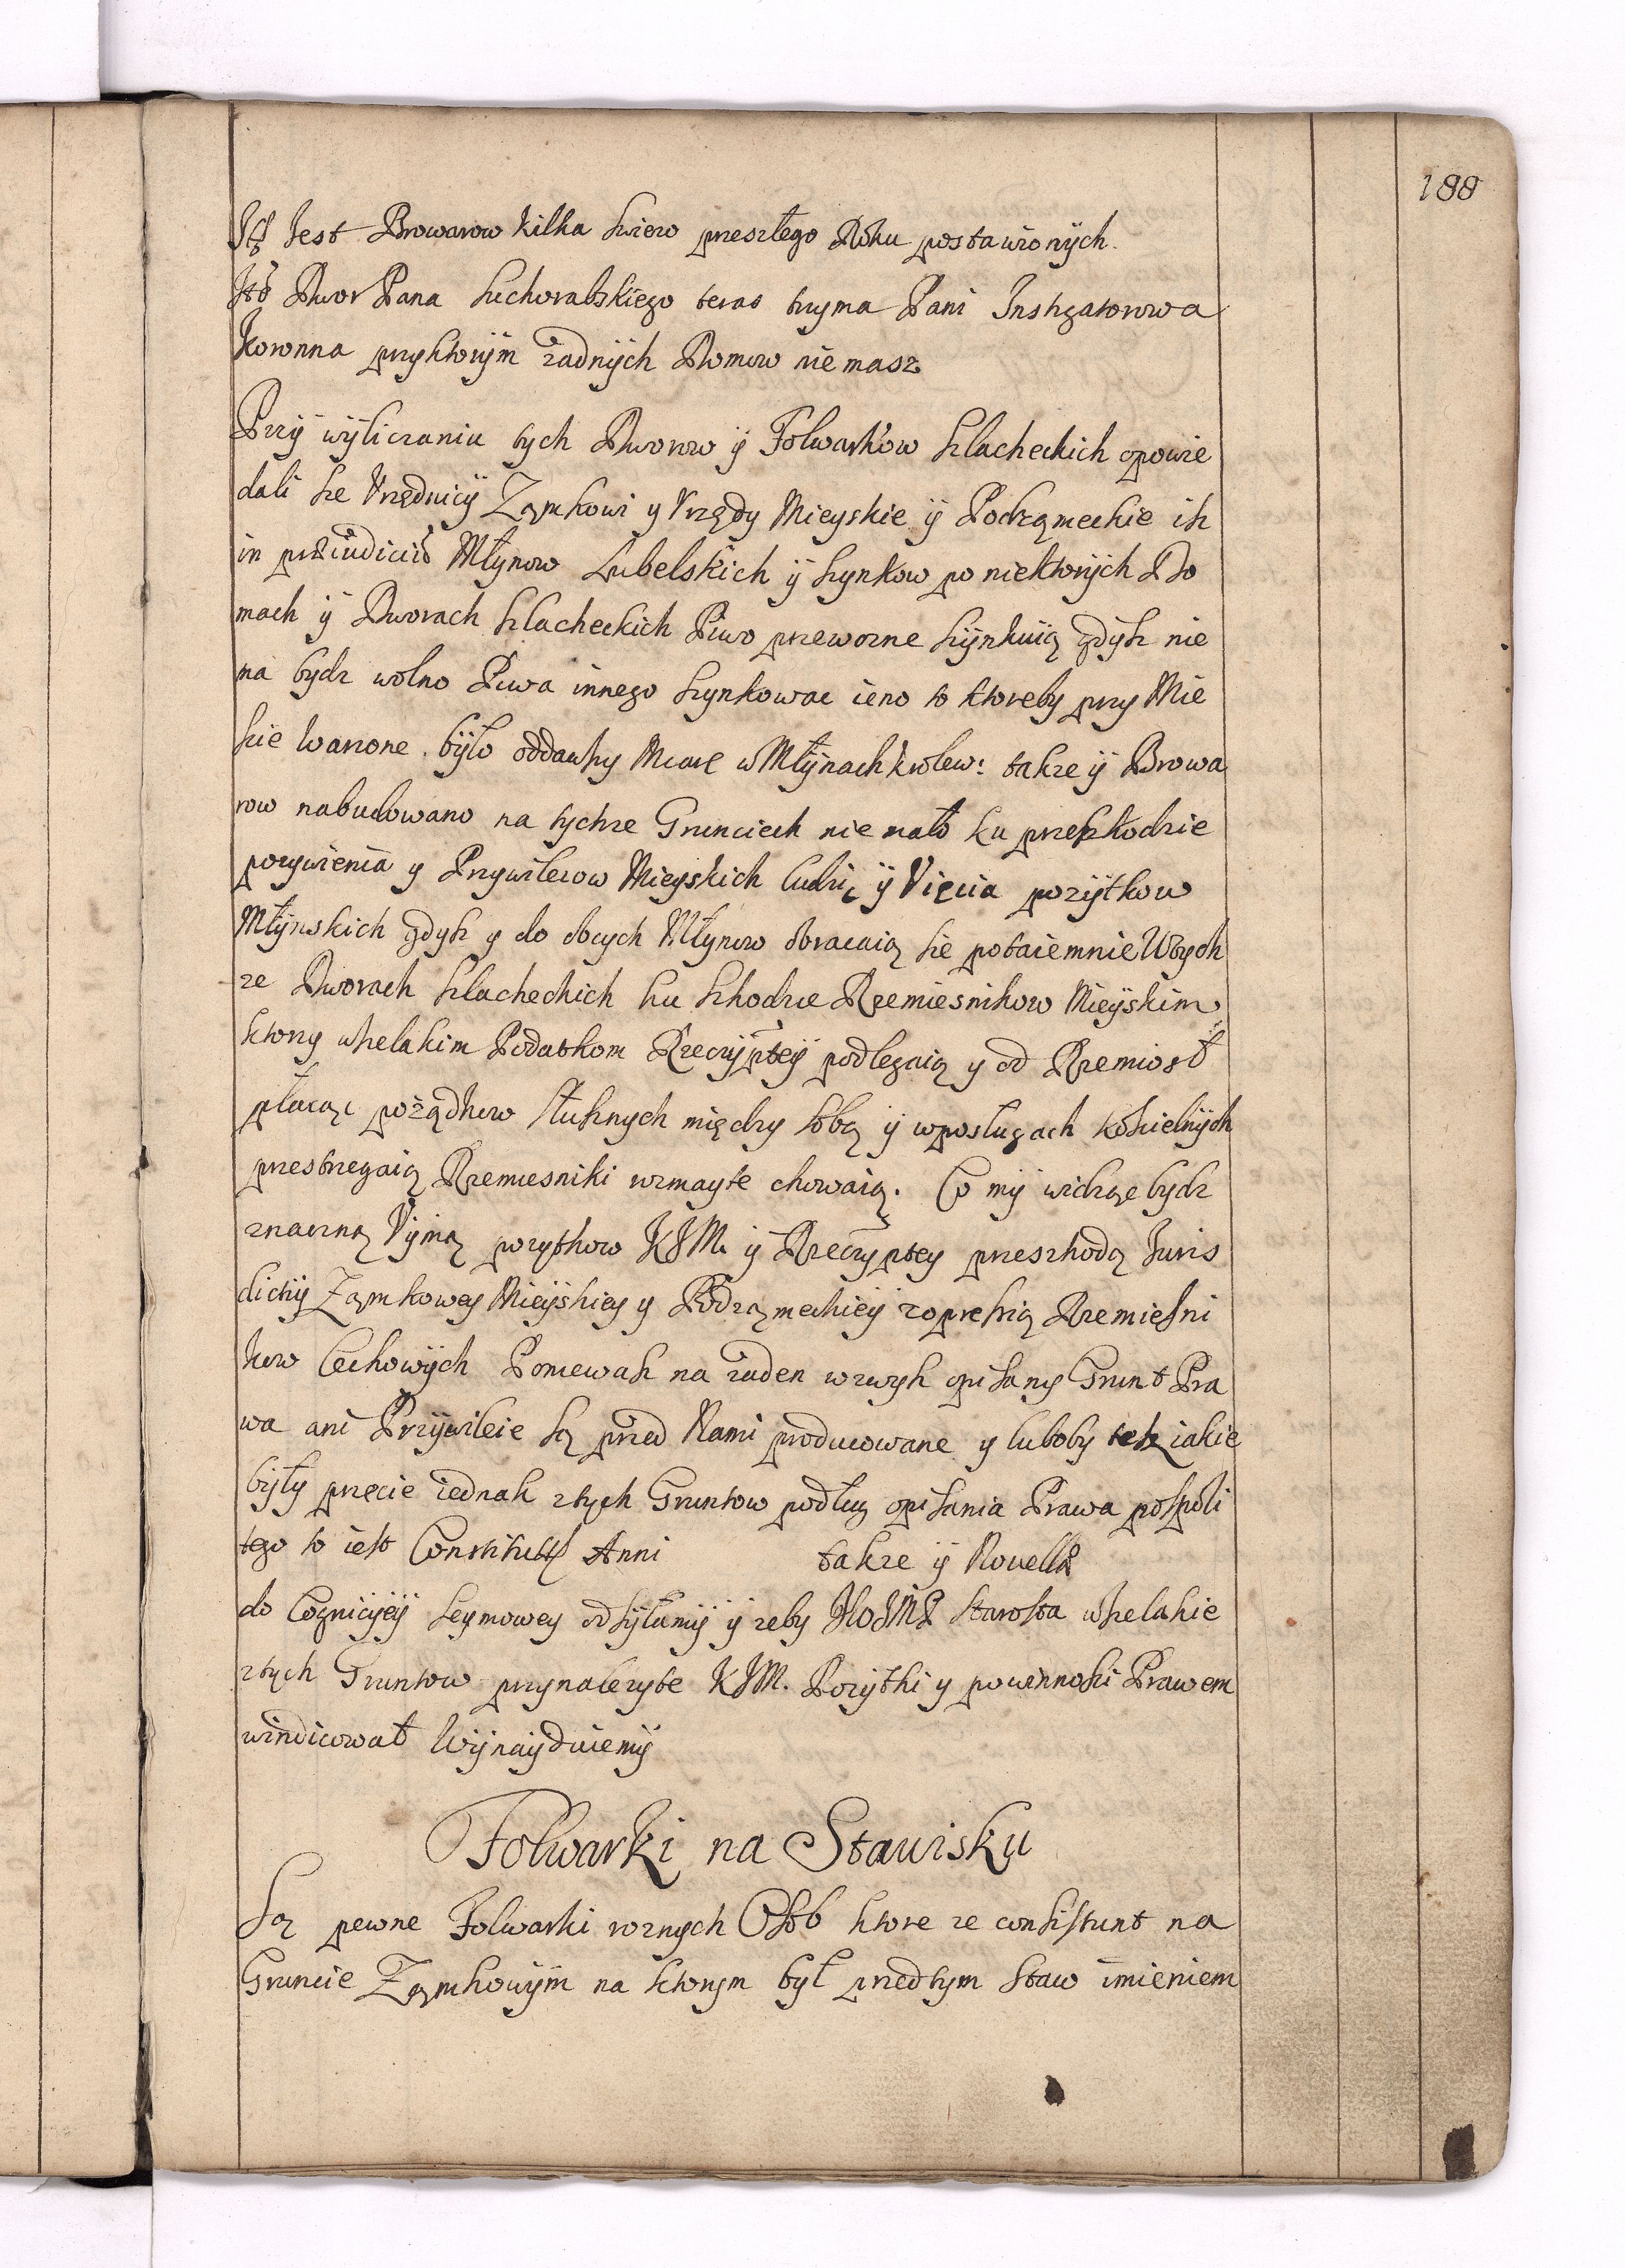 188
Jest Browarow kilka swiezo przeszłego Roku postawionÿch.
Ité Dwor Pana Suchorabskiego teraz trzyma Pani Instigatorowa
Koronna przyktorÿm zadnÿch Domow nie masz
Przÿ wÿliczaniu tych Dworow ÿ Folwarkow szlacheckich opowie
dali sie Vrzędnicÿ Zamkowi y Vrzędy Mieyskie ÿ Podzameckie isz
in präiudiciũ Młynow Lubelskich ÿ szynkow po niektorÿch Do
mach ÿ Dworach szlacheckich Piwo przewozne szÿnkuią gdÿsz nie
ma bydz wolno Piwa innego szynkowac ieno to ktoreby przy Mie
scie warzone było oddawszy Miarę w Młÿnach krolew: takze ÿ Browa
row nabudowano na tychze Grunciech nie mało ku przeszkodzie
pozywienia y Przywileiow Mieyskich ludzi ÿ Vięcia pozÿtkow
Młÿnskich gdysz y do obcych Młynow obracaią sie potaiemnie Wtych
ze Dworach szlacheckich ku szkodzie Rzemiesnikow Mieÿskim
ktorzy wszelakim Podatkom Rzeczÿptey podlegaią y od Rzemiosł
płacąc porządkow słusznych między sobą ÿ wposługach koscielnÿch
przestrzegaią Rzemiesniki rozmayte chowaią. Co mÿ widząc bydz
znaczną Vÿmą pozytkow KJM. ÿ Rzeczyptey przeszkodą Juris
dictiÿ Zamkowey Mieÿskiey y Podzameckieÿ zopressią Rzemiesni
kow Cechowÿch Poniewasz na zaden wzwysz opisany Grunt Pra
wa ani Przÿwileie są przed Nami producowane y luboby tesz iakie
bÿłÿ przecie iednak ztych Gruntow podług opisania Prawa pospoli
tego to iest Constituty Anni takze ÿ Nouella
do Cognicÿeÿ seymowey odsÿłamÿ ÿ zeby starosta wszelakie
ztych Gruntow przynalezyte KJM. Pozÿtki y powinnosci Prawem
windicował Wÿnaÿduiemÿ
Folwarki na Stawisku
Są pewne Folwarki roznych Osob ktore ze consistunt na
Gruncie Zamkowÿm na ktorym był przedtym staw imieniem